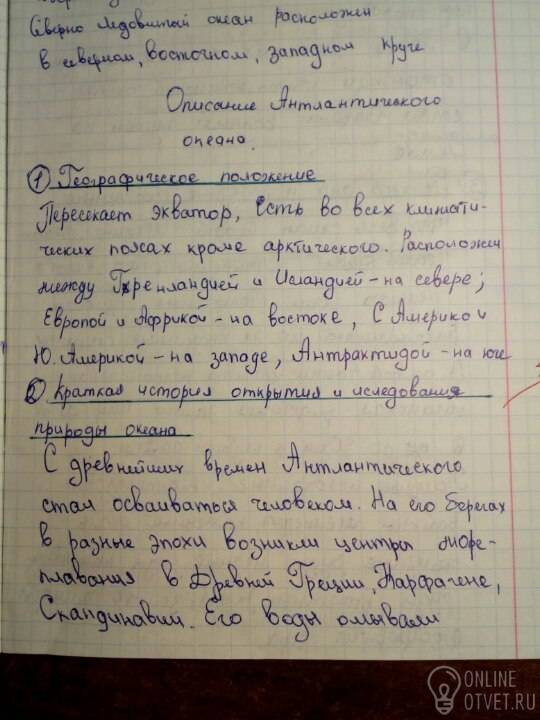 Северно Ледовитый океан расположен
в северном, восточном, западном круге
Описание Антлантического
океана.
1 Географическое положение
Пересекает экватор, Есть во всех климати-
ческих поясах кроме арктического. Расположен
между Гренландией и Исландией - на севере;
Европой и Африкой - на востоке, С Америкой
Ю. Америкой - на западе, Антрактидой - на юге
2 Краткая история открытия и иследования
природы океана
С древнейших времен Антлантического
стал осваиваться человеком. На его берегах
в разные эпохи возникли центры море-
плавания в Древней Греции, Карфагене,
Скандинавий. Его воды омывали
ONLINE
OTVET.RU